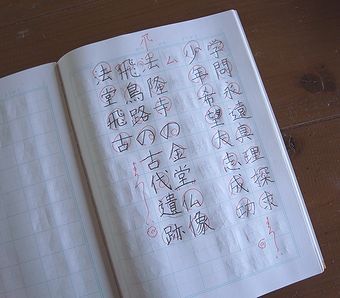 学問永遠真理探求
少年希望大志成功
法隆寺の金堂仏像
飛鳥路の古代遺跡
法堂飛古